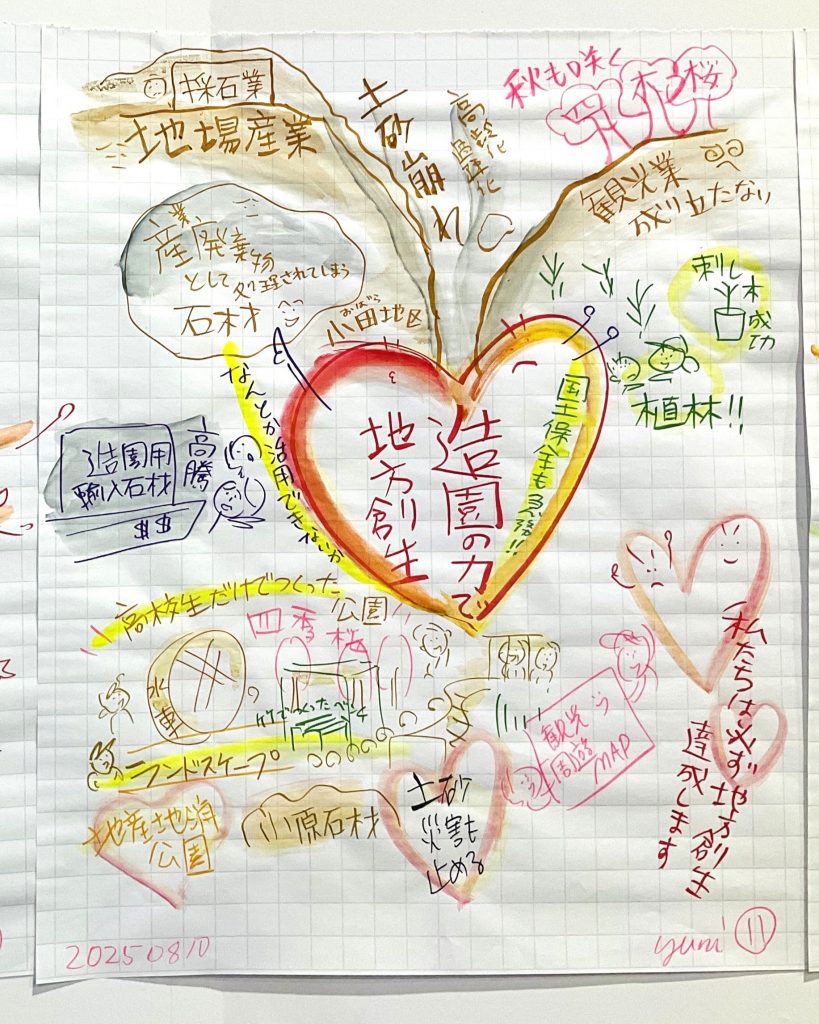 採石業
地場産業
土砂崩れ
高齢化
過疎化
秋も咲く
四季桜
観光業
成り立たない
産業廃棄物
として処理されてしまう
石材
おばら
小田地区
なんとか活用できないか
刺し木
成功
植林!!
造園用
輸入石材
高騰
$$
造園の力で
地方創生
国土保全も急務!!
高校生だけでつくった
公園
四季桜
水車
竹でつくったベンチ
ランドスケープ
観光
周遊
MAP
私たちは必ず地方創生
達成します
地産地消
公園
小原石材
土砂
災害も
止める
20250810
yumi 11